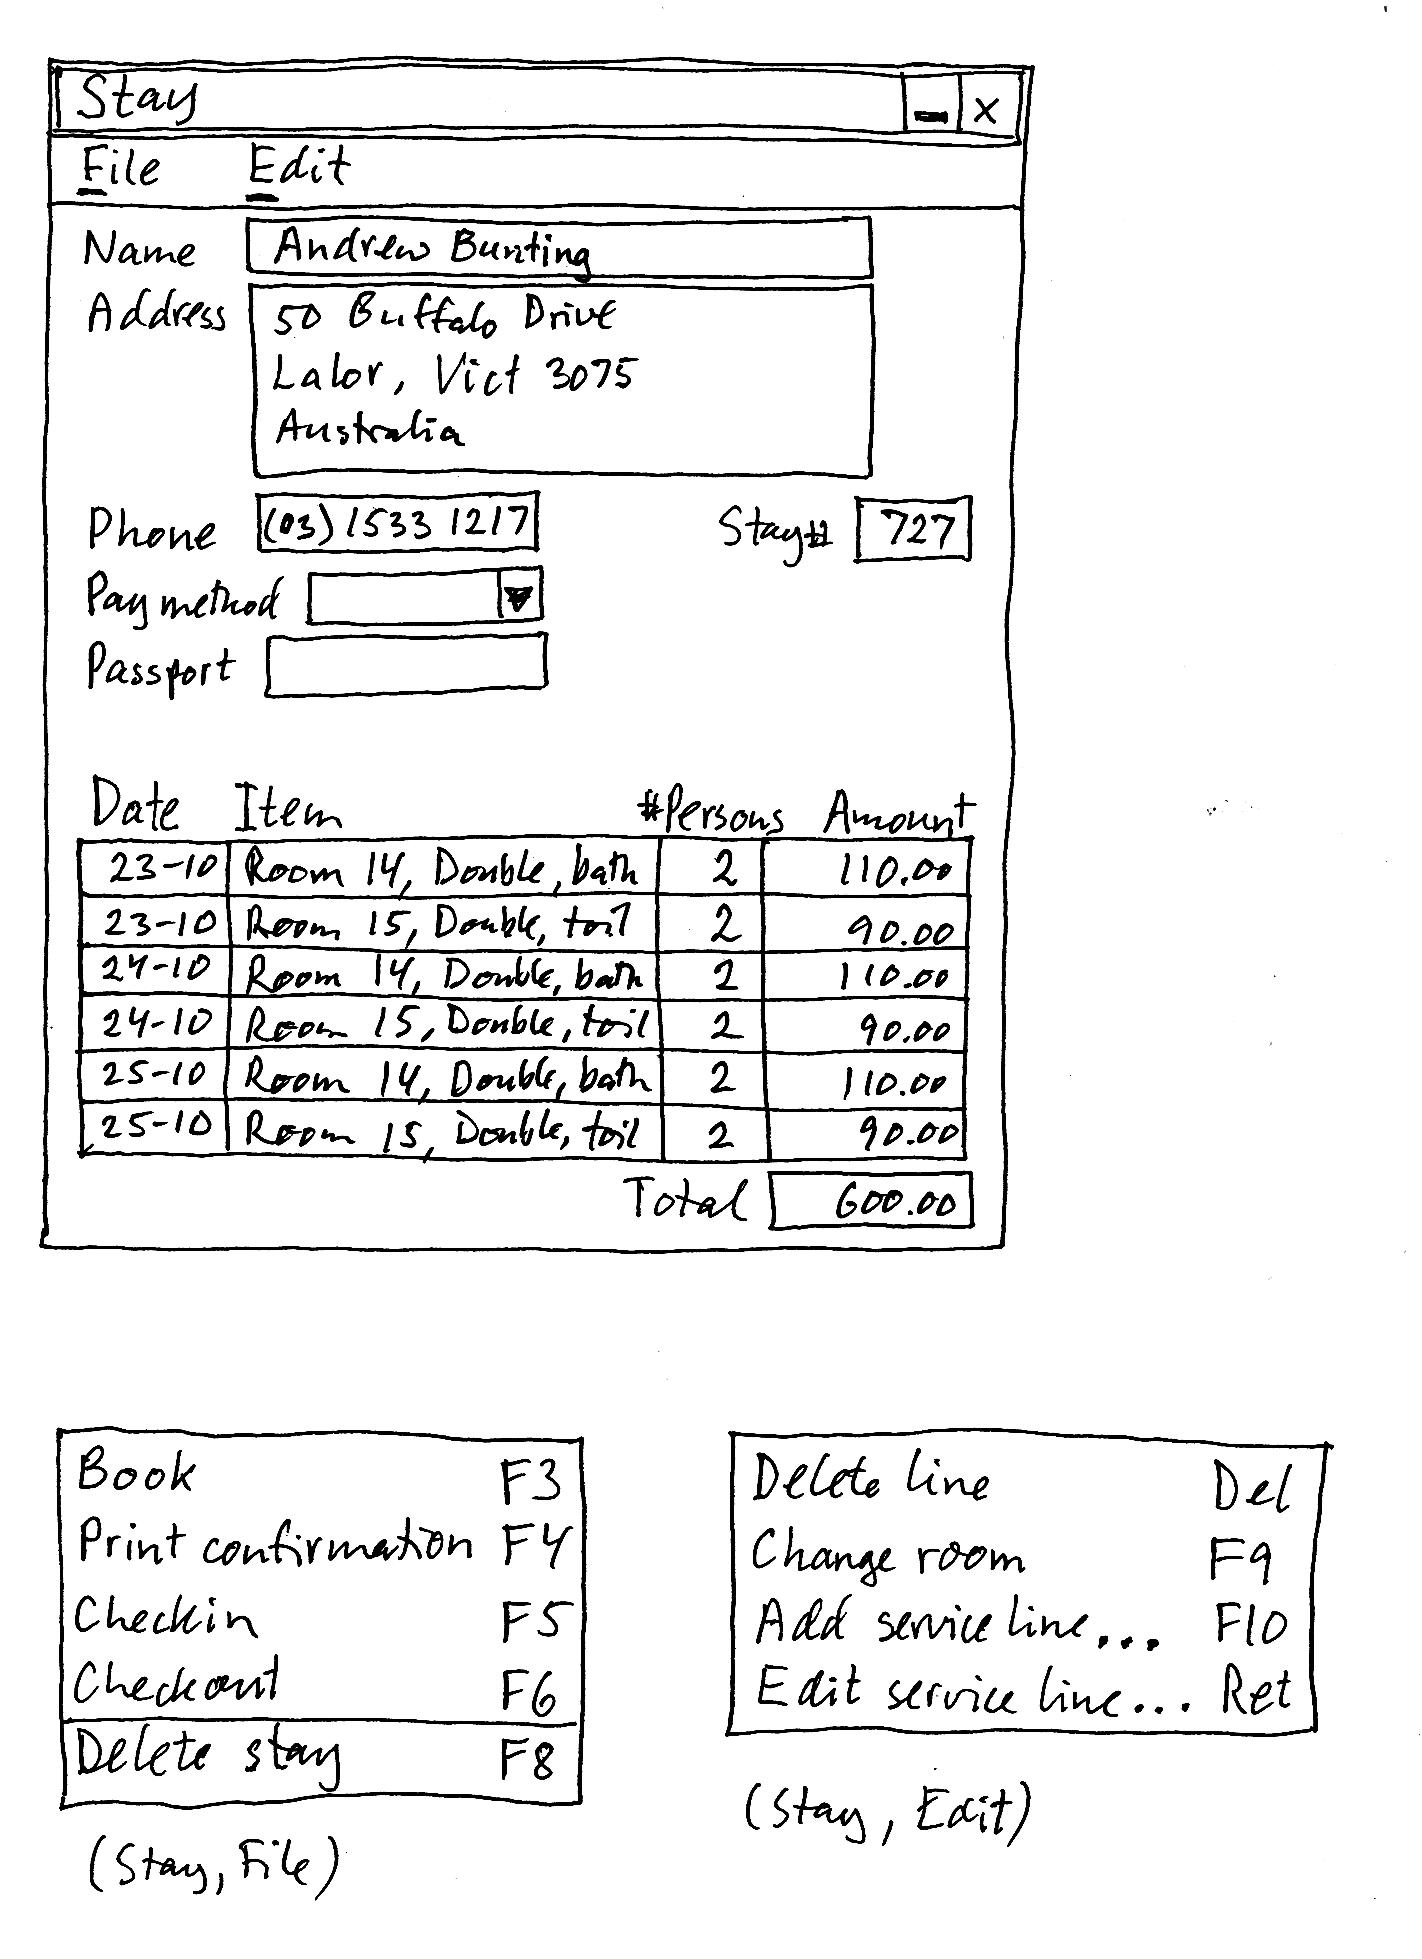 Stay
File Edit
Name Andrew Bunting
Address 50 Buffalo Drive
Lalor, Vict 3075
Australia
Phone (03) 1533 1217 Stay# 727
Pay method
Passport
Date Item #Persons Amount
23-10 Room 14, Double, bath 2 110.00
23-10 Room 15, Double, toil 2 90.00
24-10 Room 14, Double, bath 2 110.00
24-10 Room 15, Double, toil 2 90.00
25-10 Room 14, Double, bath 2 110.00
25-10 Room 15, Double, toil 2 90.00
Total 600.00
Book F3
Print confirmation F4
Checkin F5
Checkout F6
Delete stay F8
(Stay, File)
Delete line Del
Change room F9
Add service line... F10
Edit service line... Ret
(Stay, Edit)